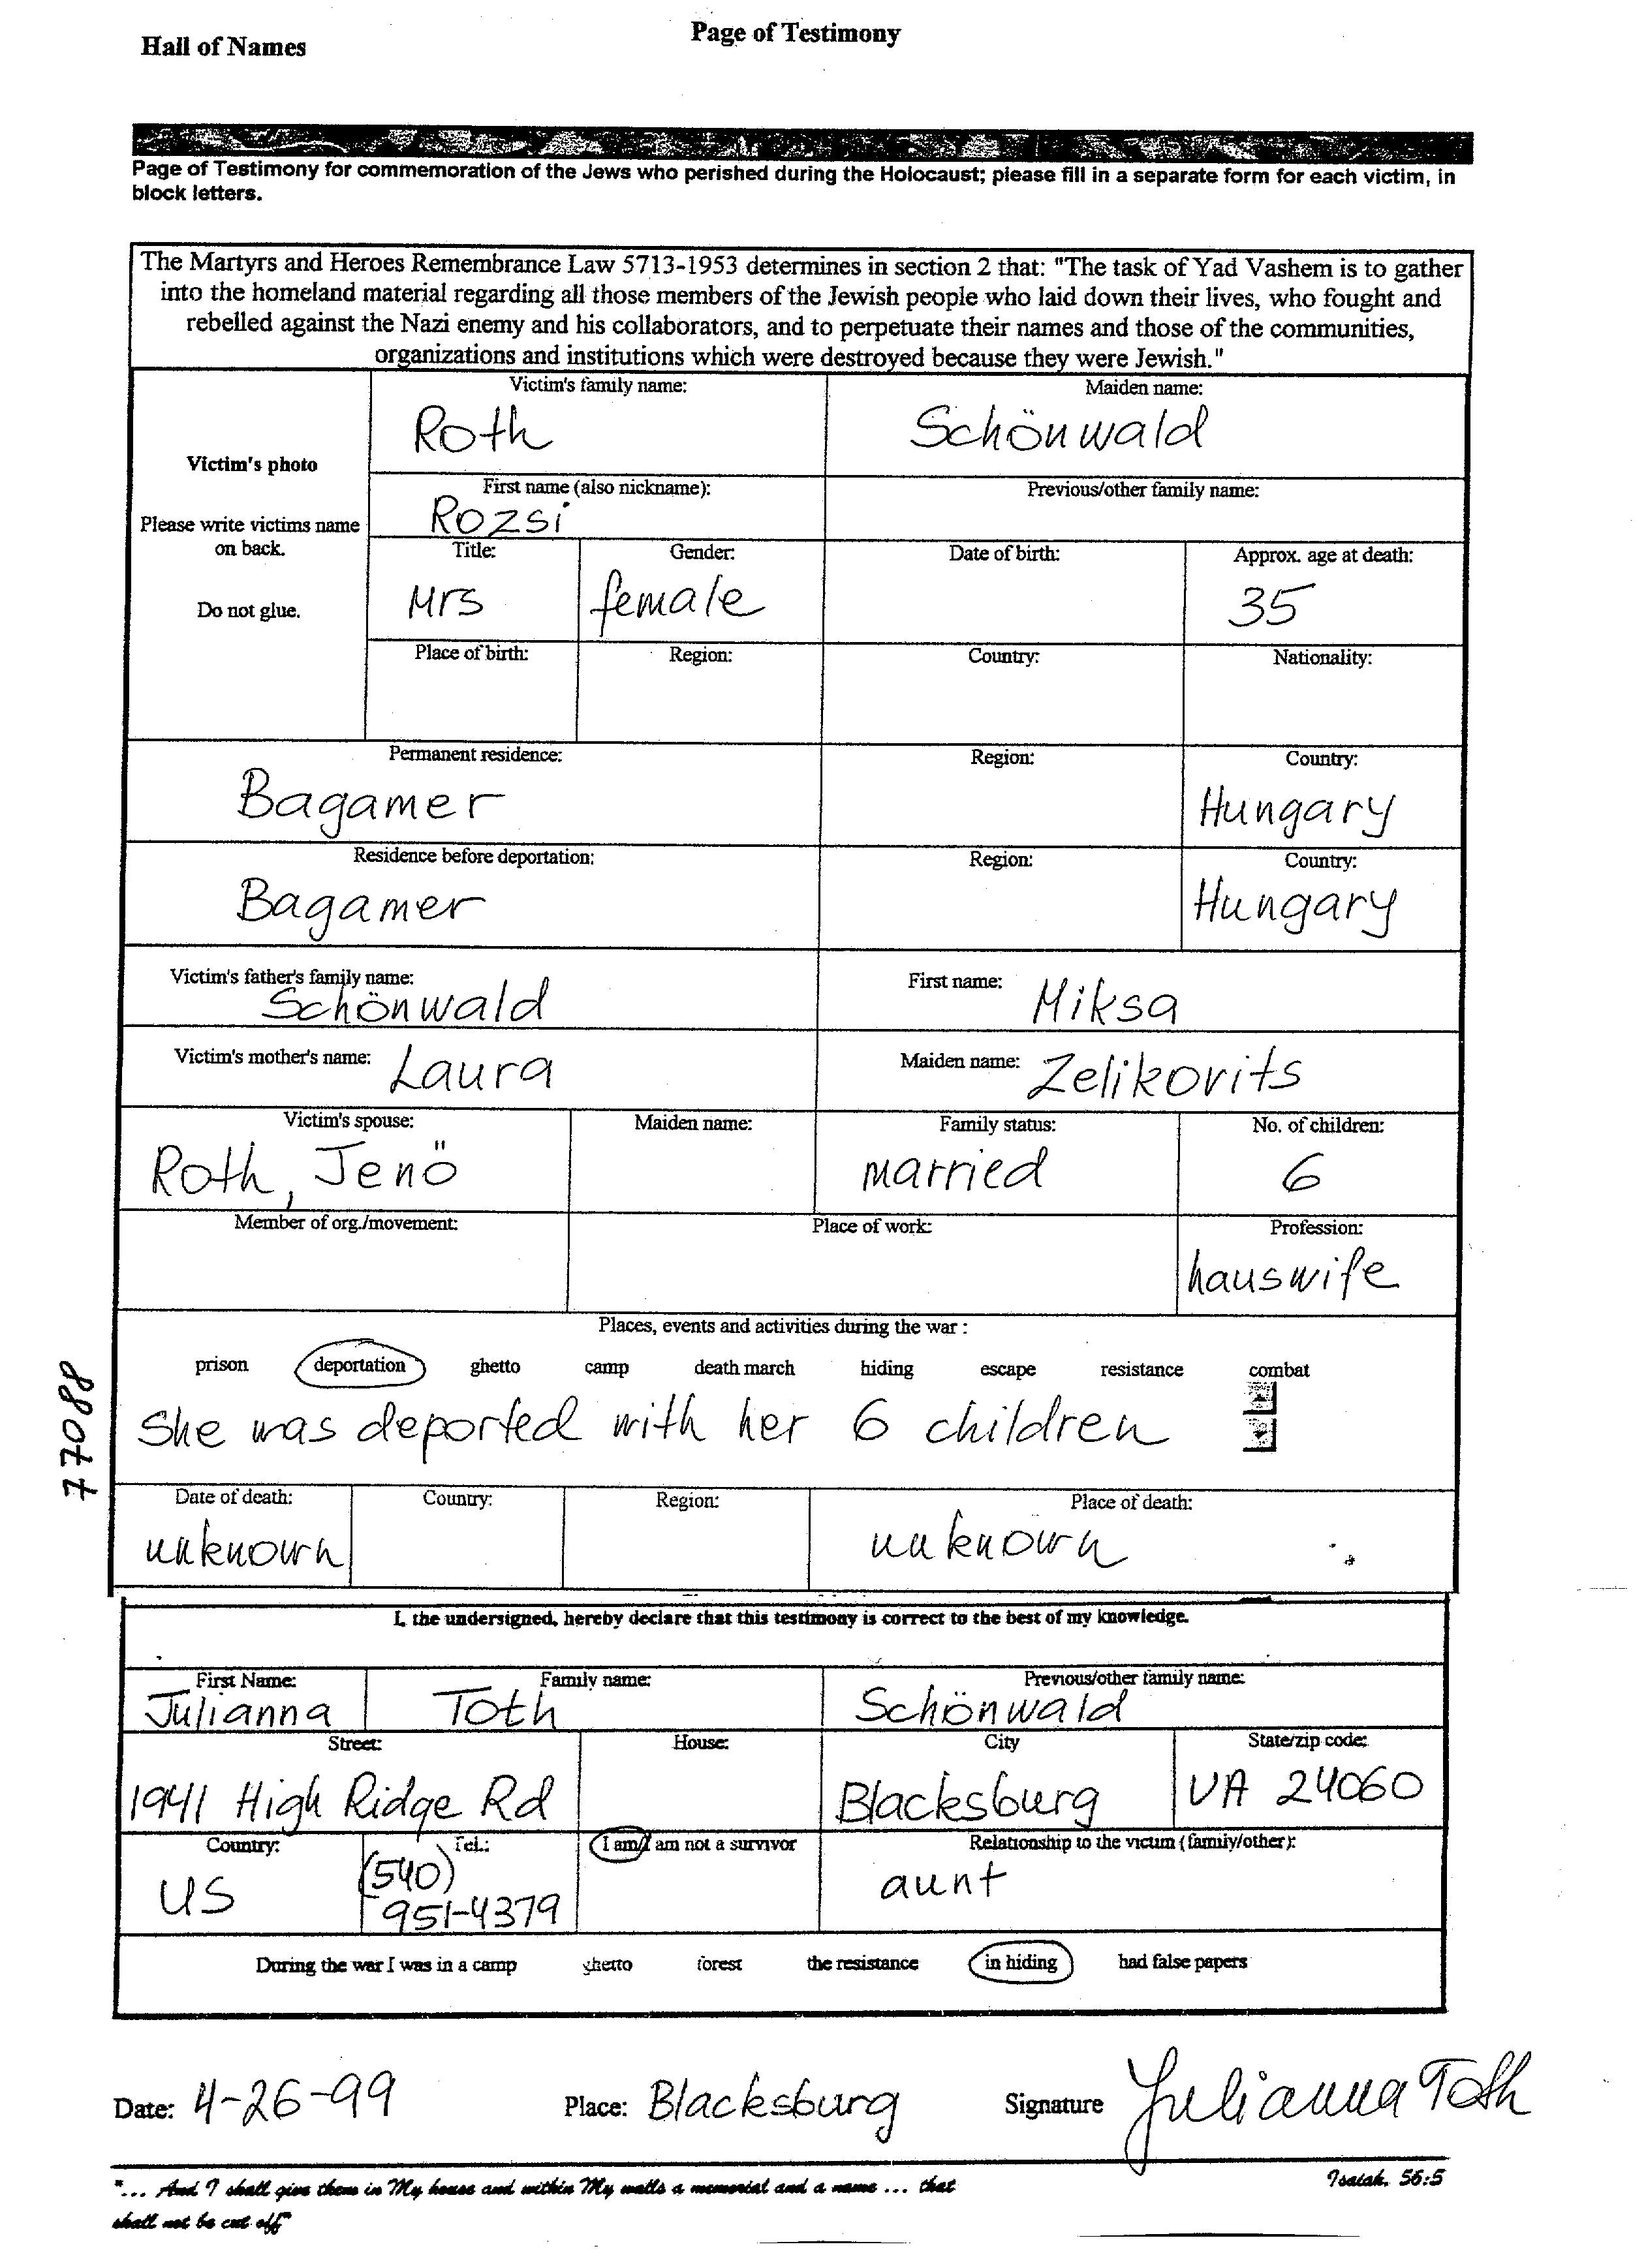 Hall of Names
Page of Testimony
Page of Testimony for commemoration of the Jews who perished during the Holocaust; please fill in a separate form for each victim, in
block letters.
The Martyrs and Heroes Remembrance Law 5713-1953 determines in section 2 that: "The task of Yad Vashem is to gather
into the homeland material regarding all those members of the Jewish people who laid down their lives, who fought and
rebelled against the Nazi enemy and his collaborators, and to perpetuate their names and those of the communities,
organizations and institutions which were destroyed because they were Jewish."
Victim's photo
Please write victims name
on back.
Do not glue.
Victim's family name:
Roth
Maiden name:
Schönwald
First name (also nickname):
Rozsi
Previous/other family name:
Title:
Mrs
Gender:
female
Date of birth:
Approx. age at death:
35
Place of birth:
Region:
Country:
Nationality:
Permanent residence:
Bagamer
Region:
Country:
Hungary
Residence before deportation:
Bagamer
Region:
Country:
Hungary
Victim's father's family name:
Schönwald
First name:
Miksa
Victim's mother's name:
Laura
Maiden name:
Zelikovits
Victim's spouse:
Roth, Jenő
Maiden name:
Family status:
married
No. of children:
6
Member of org./movement:
Place of work:
Profession:
hauswife
Places, events and activities during the war :
prison deportation ghetto camp death march hiding escape resistance combat
She was deported with her 6 children
77088
Date of death:
unknown
Country:
Region:
Place of death:
unknown
I, the undersigned, hereby declare that this testimony is correct to the best of my knowledge.
First Name:
Julianna
Family name:
Toth
Previous/other family name:
Schönwald
Street:
1941 High Ridge Rd
House:
City
Blacksburg
State/zip code:
VA 24060
Country:
US
Tel.:
(540)
951-4379
I am/I am not a survivor
Relationship to the victim (family/other):
aunt
During the war I was in a camp ghetto forest the resistance in hiding had false papers
Date: 4-26-99
Place: Blacksburg
Signature Julianna Toth
"... And I shall give them in My house and within My walls a memorial and a name ... that
shall not be cut off"
Isaiah. 56:5